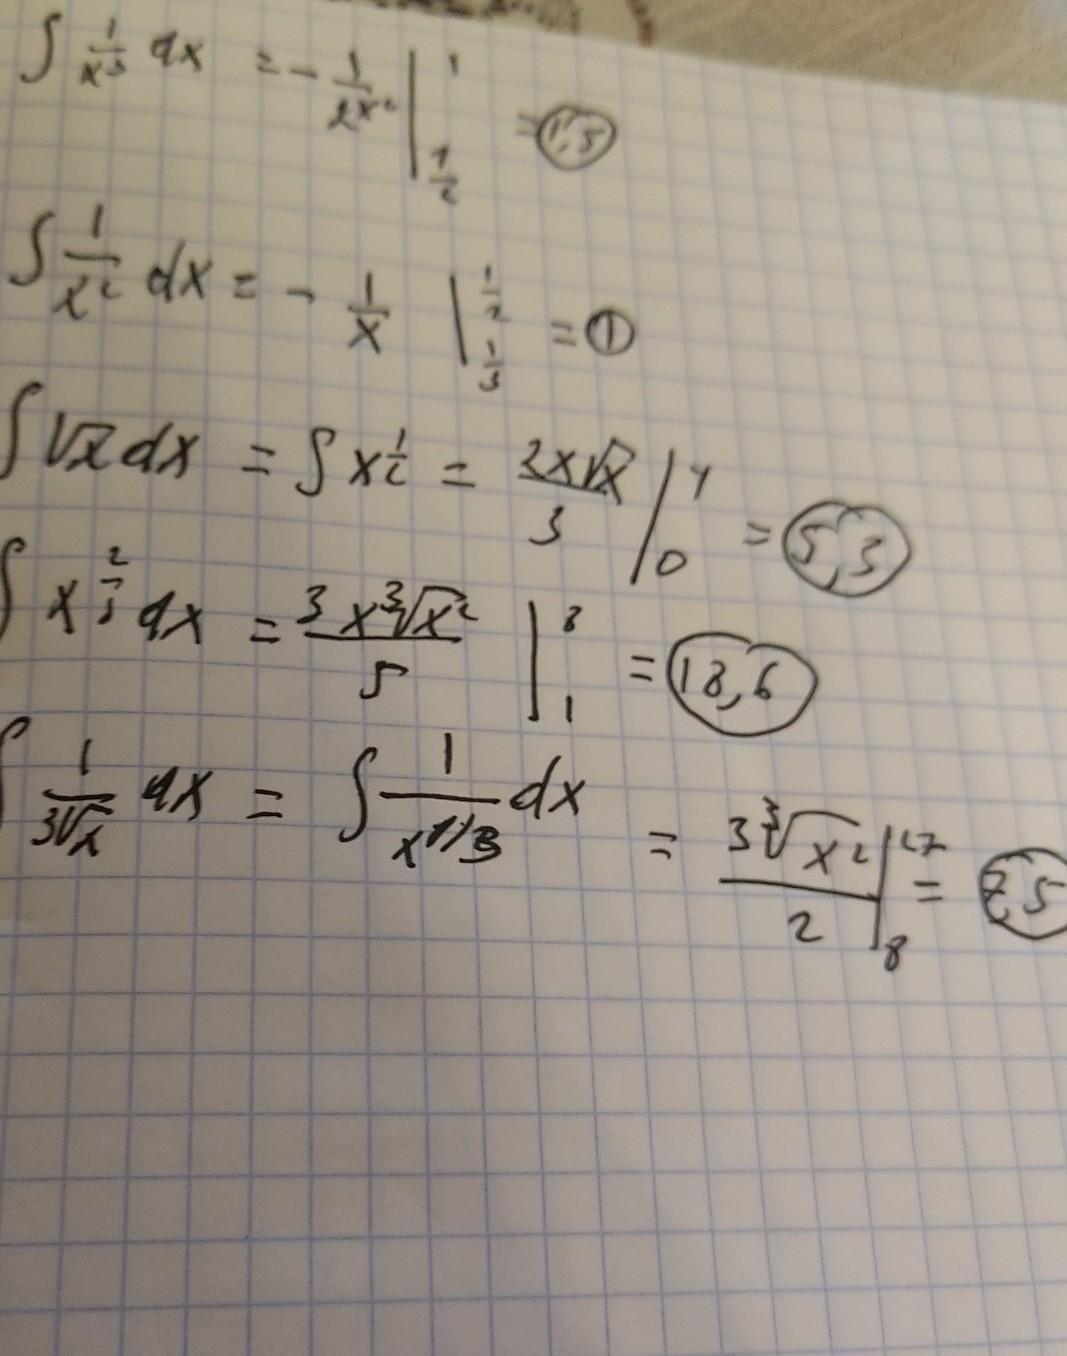 ∫ 1/x³ dx = - 1/2x² |¹_{1/2} = 1,5
∫ 1/x² dx = - 1/x |^{1/2}_{1/3} = 1
∫ √x dx = ∫ x^{1/2} = 2x√x/3 |⁴₀ = 5,3
∫ x^{2/3} dx = 3x∛x²/5 |⁸₁ = 18,6
∫ 1/∛x dx = ∫ 1/x^{1/3} dx = 3∛x²/2 |²⁷₈ = 7,5